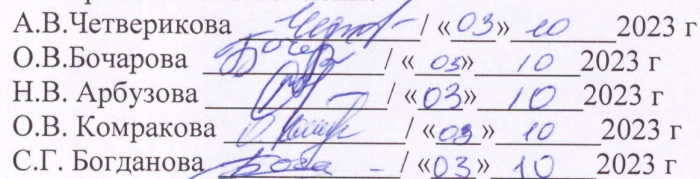 А.В.Четверикова / «03» 10 2023 г
О.В.Бочарова / «03» 10 2023 г
Н.В. Арбузова / «03» 10 2023 г
О.В. Комракова / «03» 10 2023 г
С.Г. Богданова / «03» 10 2023 г